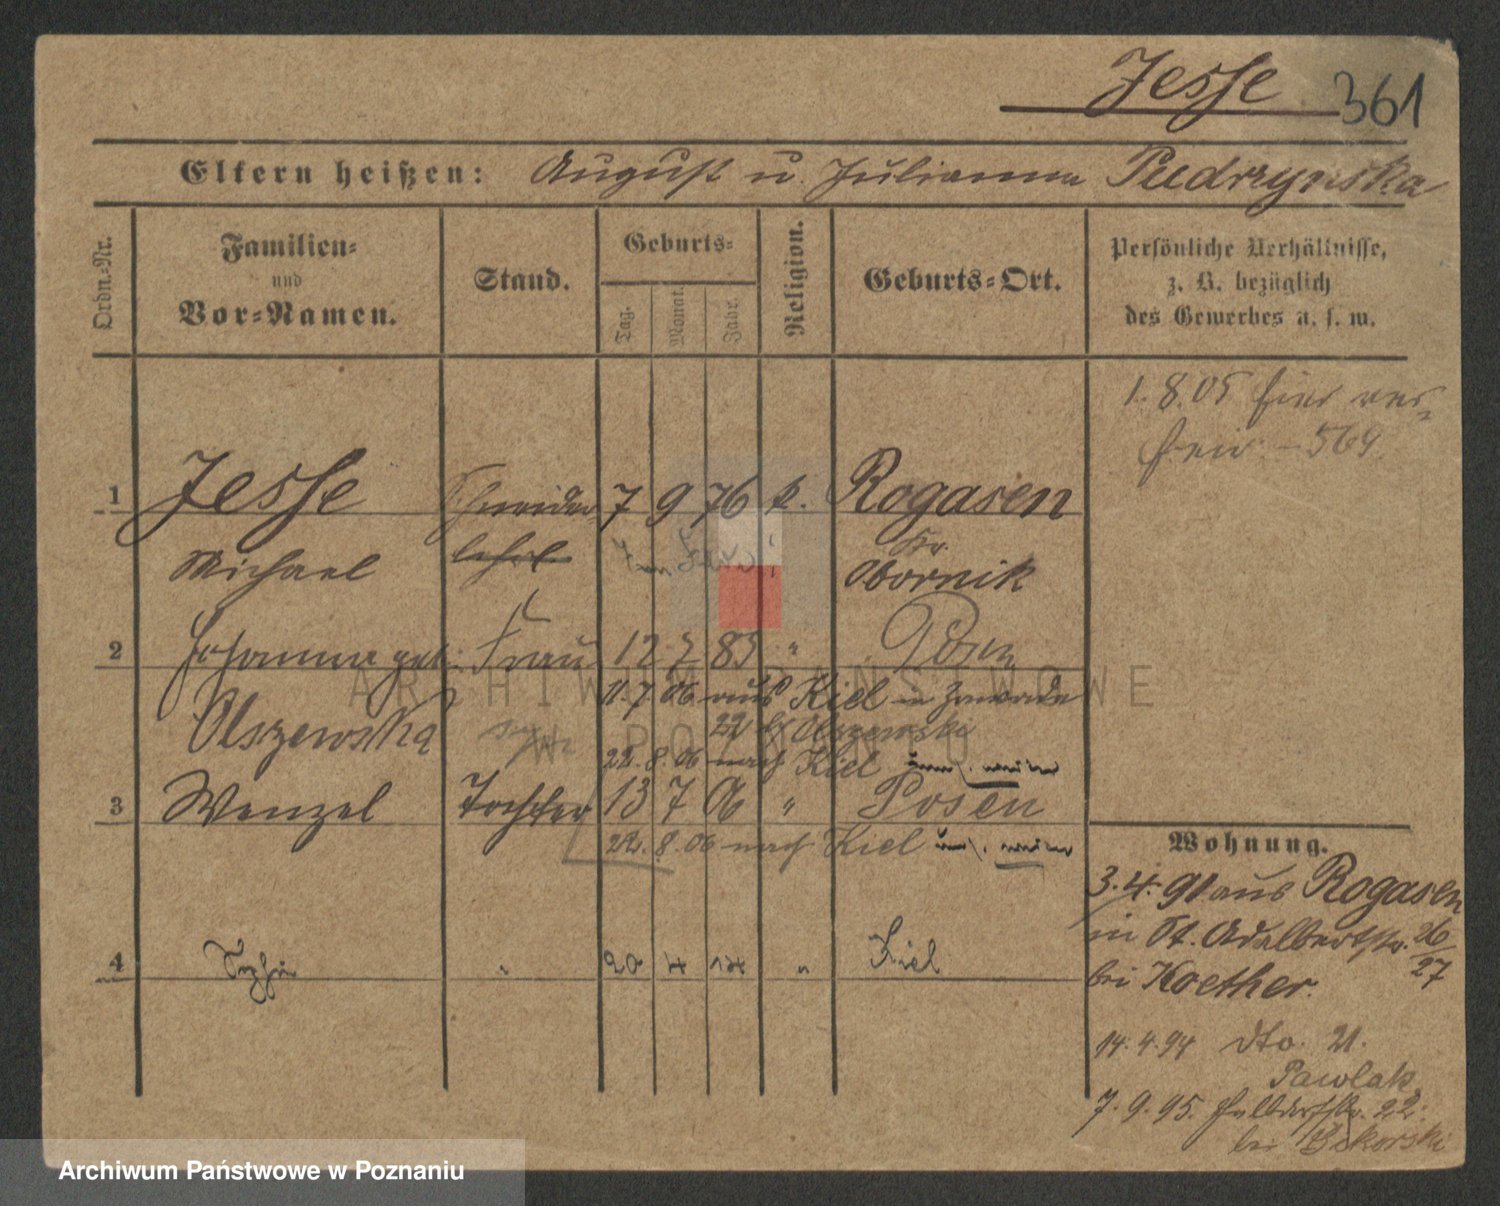 Jesse 361
Eltern heißen: August u. Julianna Pudrzynska
Ordn.-Nr.
Familien-
und
Vor-Namen.
Stand.
Geburts-
Tag. Monat. Jahr.
Religion.
Geburts-Ort.
Persönliche Verhältnisse,
z. B. bezüglich
des Gewerbes u. s. w.
1. 8. 05 hier ver=
569
1 Jesse Schneider 7 9 76 k. Rogasen
Michael lehrl Kr.
Obornik
2 Johanna geb. Frau 12 83 " Posen
11. 7 06 aus Kiel
Olszewska 22 bei Olszewski
22. 8. 06 nach Kiel
3 Wenzel Tochter 13 7 06 " Posen
22. 8. 06 nach Kiel
4 " 20 4 14 " Kiel
Wohnung.
3. 4. 91 aus Rogasen
in St. Adalbertstr. 26/27
bei Koether.
14. 4. 94 dto. 21.
Pawlak
7. 9. 95. Halbdorfstr. 22.
bei
ARCHIWUM PAŃSTWOWE
W POZNANIU
Archiwum Państwowe w Poznaniu